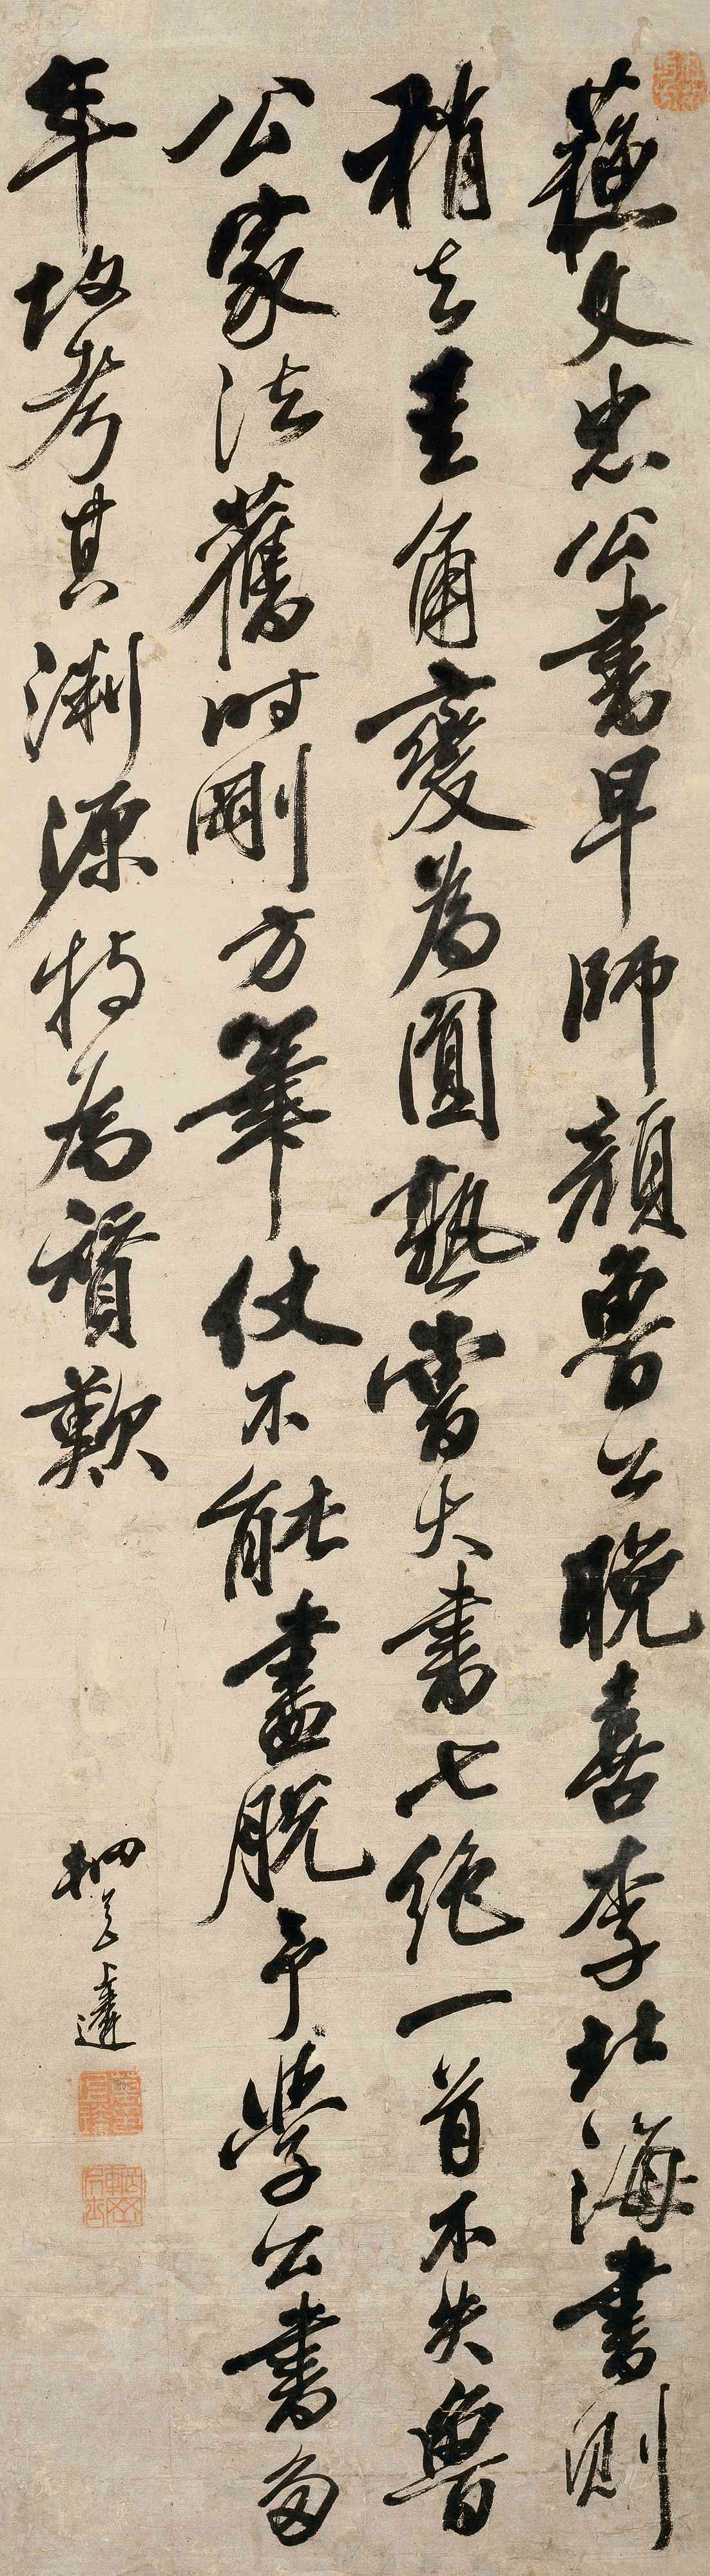 蘇文忠公書早師顏魯公晚喜李北海書則
稍去圭角變為圓熟嘗大書七絕一首不失魯
公家法舊時剛方筆仗不能盡脫予學公書多
年故考其淵源特為贊歎